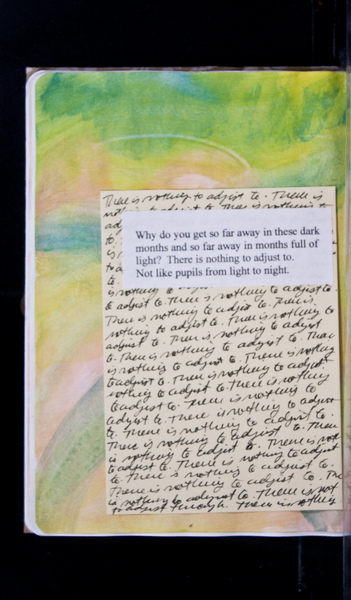 There is nothing to adjust to. There is
Why do you get so far away in these dark
months and so far away in months full of
light? There is nothing to adjust to.
Not like pupils from light to night.
is nothing to adjust to. There is nothing
to adjust to. There is nothing to adjust to.
There is nothing to adjust to. There is
nothing to adjust to. There is nothing to
adjust to. There is nothing to adjust
to. There is nothing to adjust to. There
is nothing to adjust to. There is nothing
to adjust to. There is nothing to adjust to.
nothing to adjust to. there is nothing
to adjust to. There is nothing to
adjust to. There is nothing to adjust
to. There is nothing to adjust to.
There is nothing to adjust to. There
is nothing to adjust to. There is not
to adjust to. There is nothing to adjust
to. There is nothing to adjust to.
There is nothing to adjust to. The
is nothing to adjust to. There is not
to adjust through. There is nothing